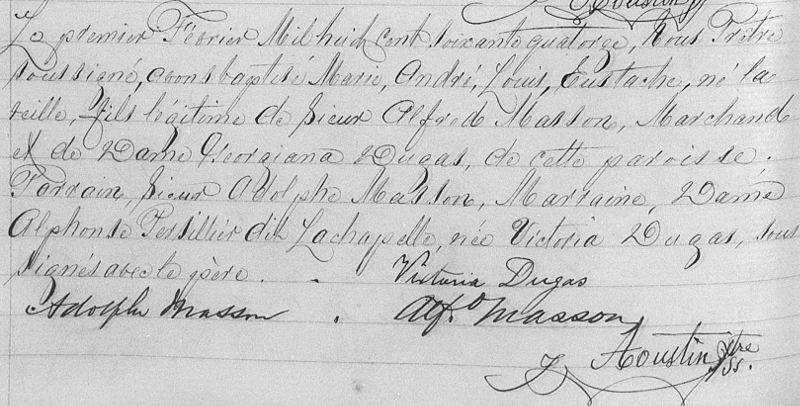 Aoustin
Le premier Février Mil huit cent soixante quatorze, Nous Prêtre
soussigné, avons baptisé Marie, André, Louis, Eustache, né la
veille, fils légitime de Sieur Alfred Masson, Marchand
et de Dame Georgiana Dugas, de cette paroisse.
Parrain, Sieur Adolphe Masson, Marraine, Dame
Alphonse Persillier dit Lachapelle, née Victoria Dugas, sous
signés avec le père. . Victoria Dugas
Adolphe Masson . Alf.d Masson
Aoustin Ptre
SS.